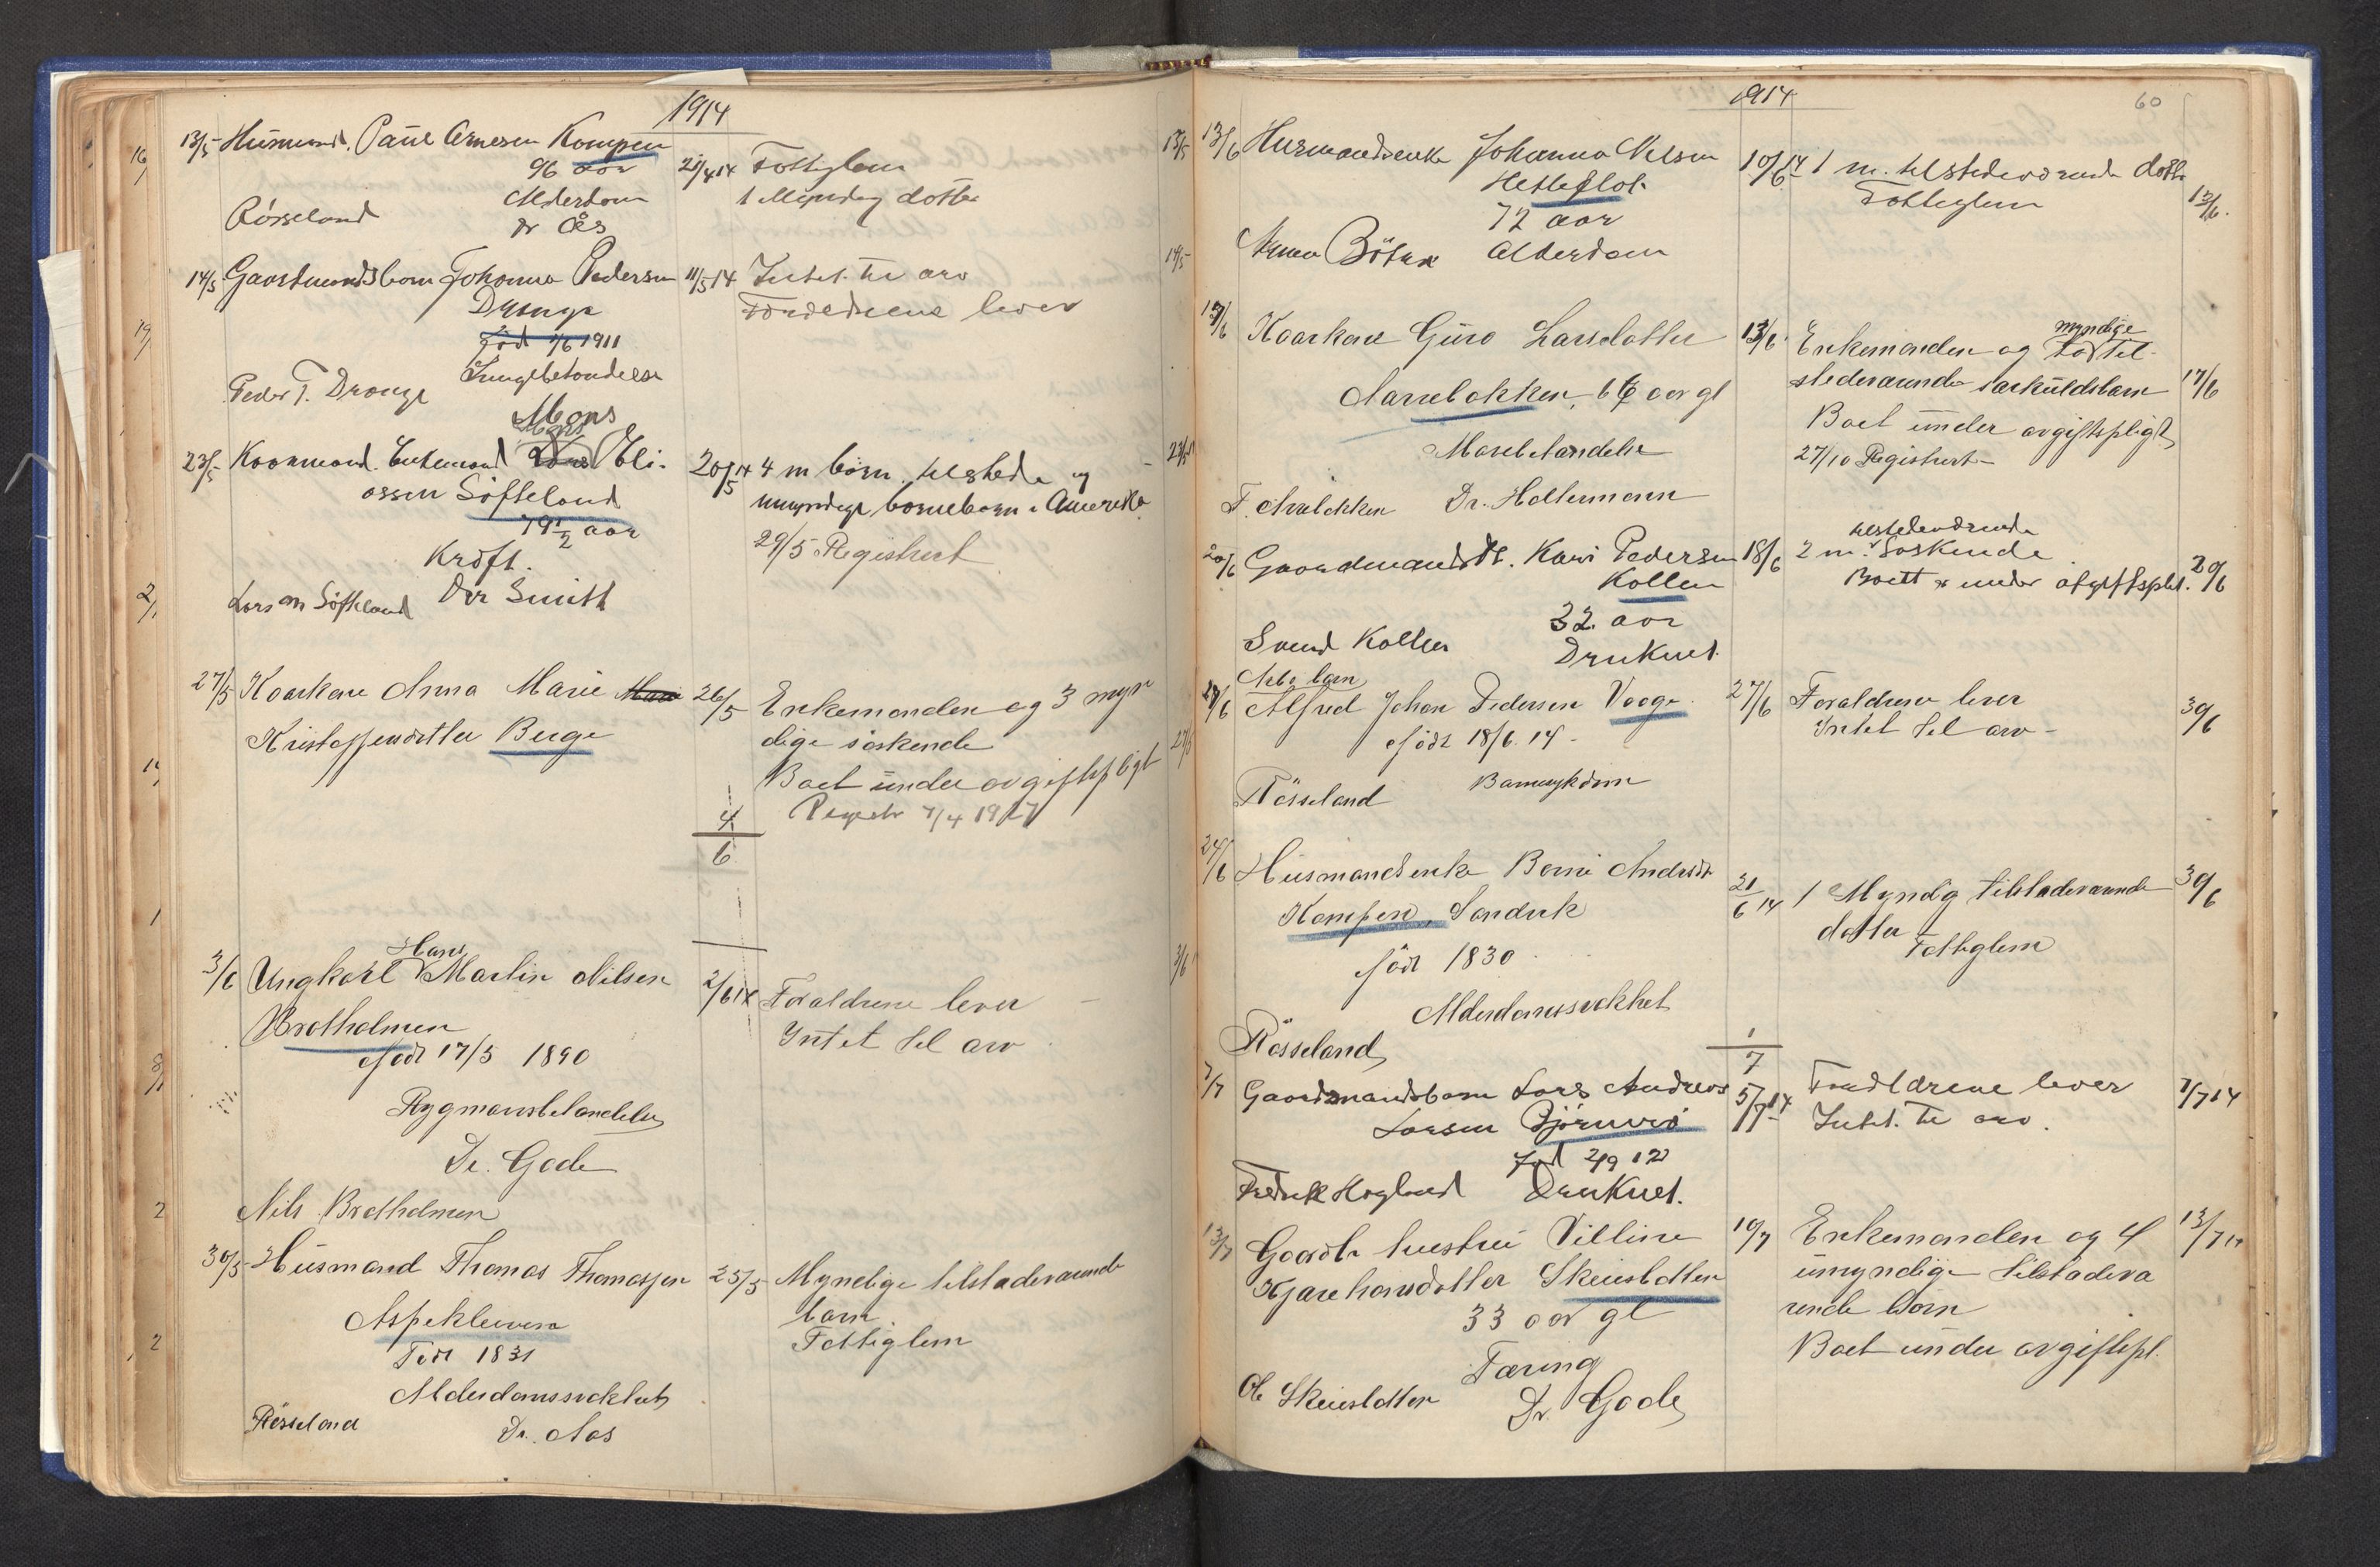 1914
13/5 Husmand. Paul Arnesen Kompen
96 aar
21/4 14 Fattiglem
Alderdom
1 Myndig dotter
Rösseland
Dr Ås
14/5 Gaardmandsbarn Johanna Pedersen
11/5 14 Intet til arv
Drange
Forældrene lever
Född 1/6 1911
Lungebetændelse
Peder T. Drange
Mons
23/5 Kaarmand. Enkemand Mons Eli-
20/5 14 4 m börn tilstede og
assen Söfteland
umyndige barnebarn i Amerika
79 1/2 aar
29/5 Registrert
Kræft.
Lars M Söfteland Dr Smith
27/5 Kaarkone Anna Marie
26/5 Enkemanden og 3 myn
Kristoffersdatter Berge
dige söskende
Boet under avgiftspligt
Registr 7/4 1917
4
6
Hans
3/6 Ungkarl Martin Nilsen
2/6 14 Forældrene lever
Brotholmen
Intet til arv
Född 17/5 1890
Rygmarvsbetændelse
Dr. Gade
Nils Brotholmen
30/5 Husmand Thomas Thomassen
25/5 Myndige tilstedeværende
Aspekleiven
barn
Fattiglem
Född 1831
Alderdomssvakhet
Rösseland
Dr. Aas
1914
60
13/6 Husmandsenke Johanna Nilsen
10/6 14 1 m. tilstedeværende dotter
Helleflot
Fattiglem
13/6.
72 aar
Alderdom
17/6 Kaarkone Guro Larsdatter
13/6 Enkemanden og myndige
tilstedeværende særkuldsbarn
17/6
Boet under avgiftspligt
27/10 Registrert
Mavebetændelse
Dr. Holtermann
20/6 Gaardmandsdt. Kari Pedersen
18/6 2 m. tilstedeværende Söskende
Kollen
Boet under afgiftsplt.
20/6
32 aar
Svend Kollen
Druknet.
Arb. barn
Alfred Johan Pedersen Vaage
27/6 Forældrene lever
30/6
född 18/6. 14
Intet til arv
Rösseland
Barnesykdom
24/6 Husmandsenke Andersdt
21/6 14 1 Myndig tilstedeværende
30/6
Kompen, Sandvik
dotter
Fattiglem
född 1830
Alderdomssvakhet
Rösseland
1
7
7/7 Gaardmandsbarn Lars Andreas
5/7 14 Forældrene lever
7/7 14
Larsen Björnerö
Intet til arv.
Född 2/9 12
Fredrik Hogland Druknet.
13/7 Gaardbr hustru Villine
10/7 Enkemanden og 4
13/7 14
umyndige tilstedevæ
rende børn
33 aar gl
Boet under avgiftspl.
Tæring
Dr. Gade